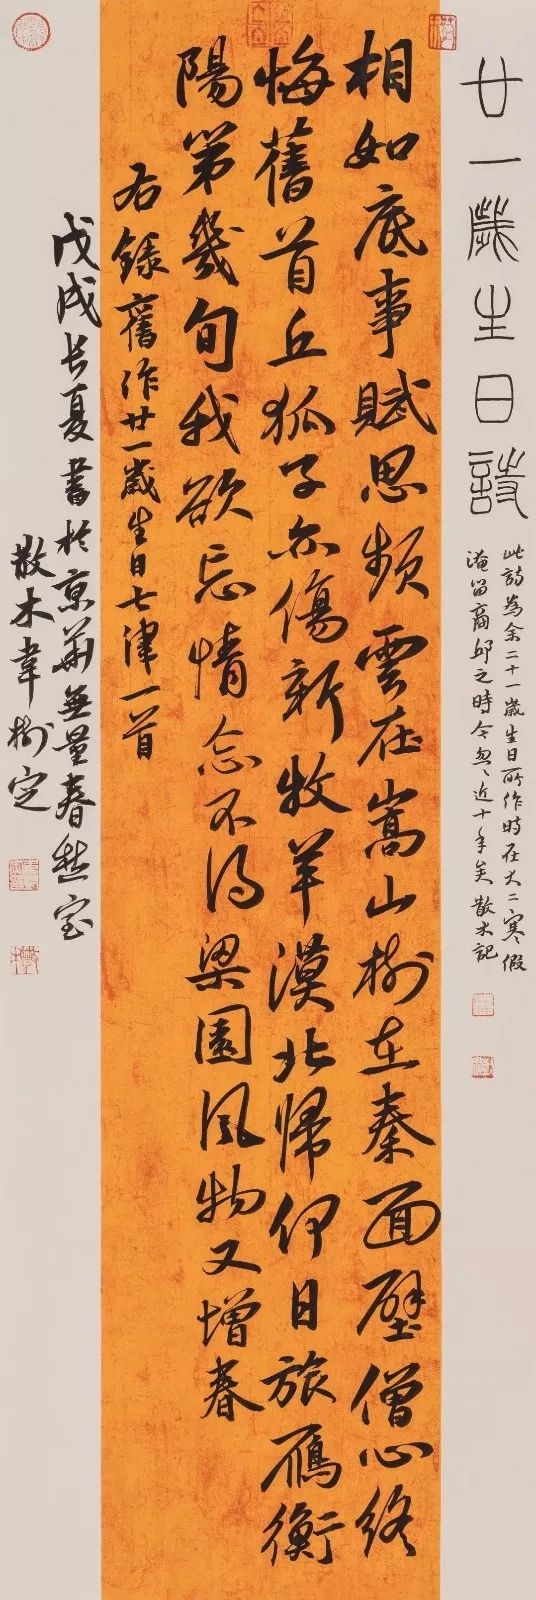 廿一歲生日詩
此詩為余二十一歲生日所作時在大二寒假
淹留商邱之時今忽〻近十年矣散木記
相如底事賦思頻雲在嵩山樹在秦面壁僧心終
悔舊首丘狐子亦傷新牧羊漠北歸何日旅雁衡
陽第幾旬我欲忘情忘不得梁園風物又增春
右錄舊作廿一歲生日七律一首
戊戌長夏書於京華無量春愁室
散木韋樹定